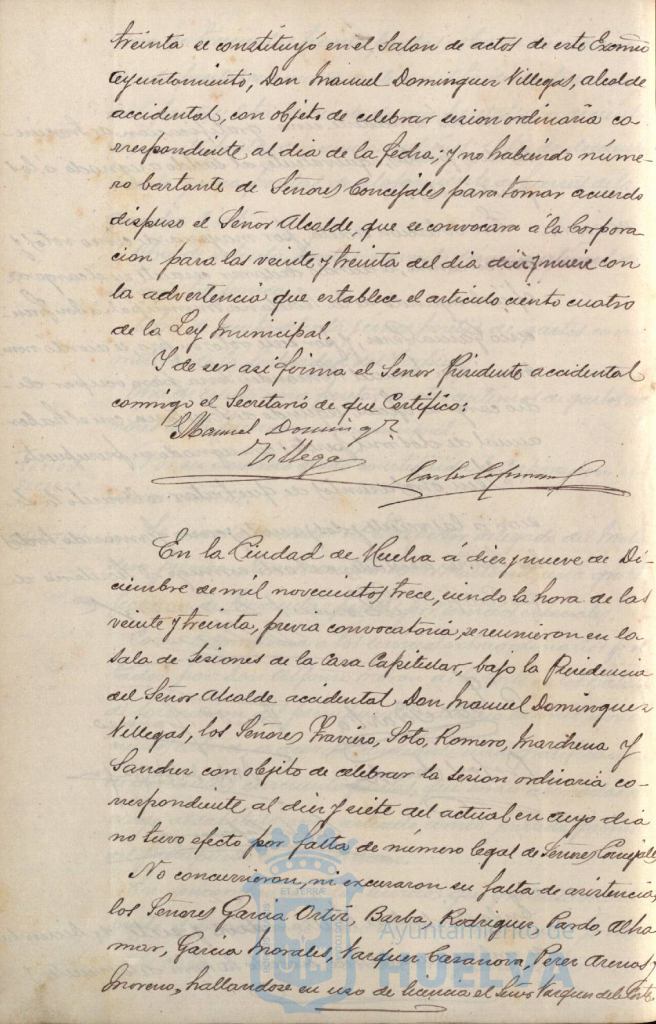 treinta se constituyó en el Salon de actos de este Excmo
Ayuntamiento, Don Manuel Dominguez Villegas, Alcalde
accidental, con objeto de celebrar sesion ordinaria co
rrespondiente al dia de la fecha; y no habiendo núme
ro bastante de Señores Concejales para tomar acuerdo
dispuso el Señor Alcalde, que se convocara á la Corpora
cion para las veinte y treinta del dia diez y nueve con
la advertencia que establece el articulo ciento cuatro
de la Ley Municipal.
Y de ser asi firma el Señor Presidente accidental
conmigo el Secretario de que Certifico:
Manuel Doming.z
Villega
En la Ciudad de Huelva á diez y nueve de Di-
ciembre de mil novecientos trece, siendo la hora de las
veinte y treinta, previa convocatoria, se reunieron en la
Sala de Sesiones de la Casa Capitular, bajo la Presidencia
del Señor Alcalde accidental Don Manuel Dominguez
Villegas, los Señores Traviero, Soto, Romero, Marchena y
Sanchez con objeto de celebrar la sesion ordinaria co-
rrespondiente al diez y siete del actual en cuyo dia
no tuvo efecto por falta de número legal de Señores Concejales
No concurrieron, ni excusaron su falta de asistencia,
los Señores Garcia Ortiz, Barba, Rodriguez, Pardo, Alha
mar, Garcia Morales, Vazquez Casanova, Perez Arenas y
Moreno, hallandose en uso de licencia el Señor Vazquez de la Corte
Ayuntamiento de
HUELVA